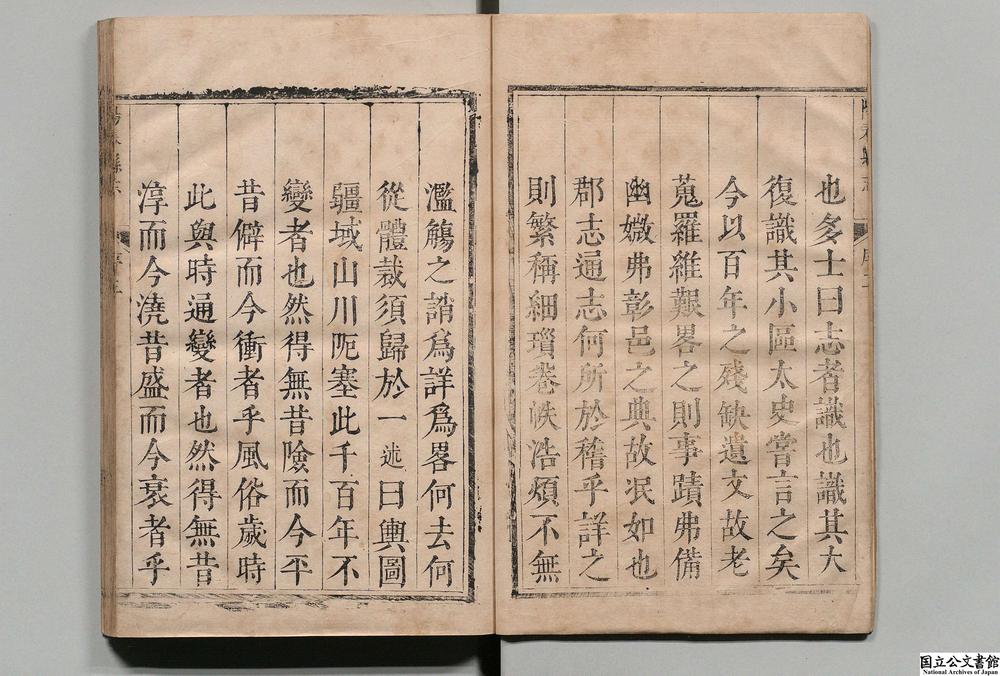 也多士曰志者識也識其大
復識其小區太史嘗言之矣
今以百年之殘缺遺文故老
蒐羅維艱畧之則事蹟弗備
幽媺弗彰邑之典故泯如也
郡志通志何所於稽乎詳之
則繁稱細瑣卷帙浩煩不無
濫觴之誚爲詳爲畧何去何
從體裁須歸於一述曰輿圖
疆域山川阨塞此千百年不
變者也然得無昔險而今平
昔僻而今衝者乎風俗歲時
此與時通變者也然得無昔
淳而今澆昔盛而今衰者乎
国立公文書館
National Archives of Japan